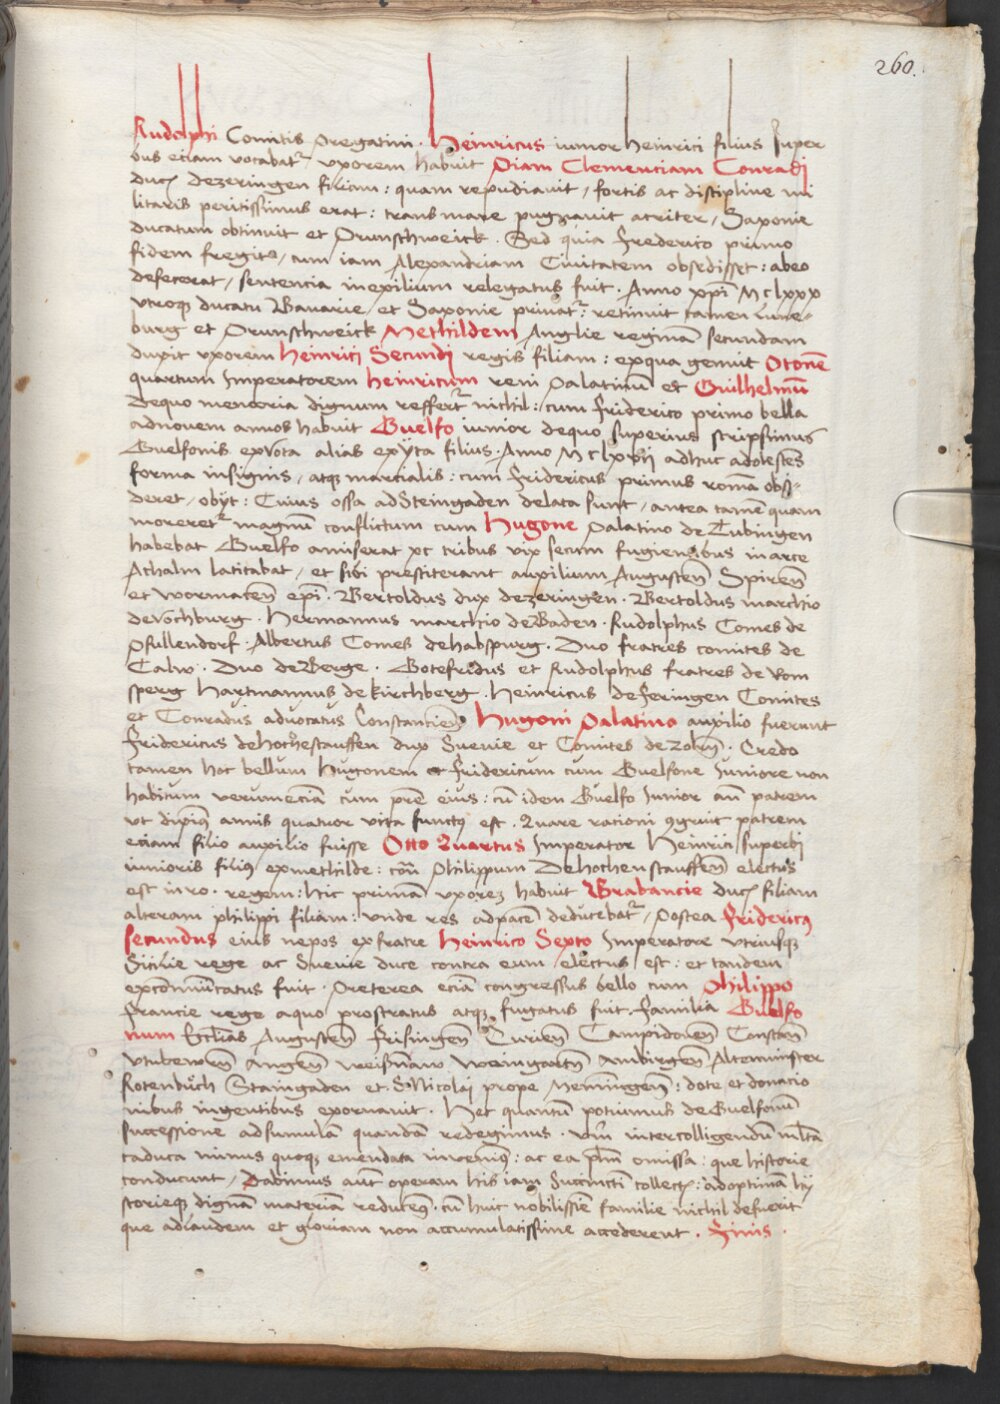 260.
Rudolphi Comitis Bregatini. Heinricus iunior heinrici filius super
bus eciam vocabat᷑ vxorem habuit Piam Clemenciam Conradi
ducꝭ dezeringen filiam: quam repudiauit / fortis ac discipline mi
litaris peritissimus erat: transmare pugnauit acriter / Saxonie
ducatum obtinuit et Brunschweick. Sed quia frederico primo
fidem fregit / cum iam Alexandriam Ciuitatem obsedisset: abeo
defecerat / sentencia inexilium relegatus fuit. Anno xp̄i Mclxxx
vtroqꝫ ducatu Bauarie / et Saxonie priuat᷑: retinuit tamen lune-
burg et Brunschweick Methildem Anglie reginā secundam
duxit vxorem heinrici Secundi regis filiam: exqua genuit Otonē
quartum Imperatorem heinricum reni Palatinū et Guilhelmū
Dequo memoria dignum reffert᷑ nichil: cum friderico primo bella
adnouem annos habuit Guelfo iunior dequo superius scripsimus
Guelfonis exvota alias exyta filius. Anno Mclxvij adhuc adolescēs
forma insignis / atqꝫ marcialis: cum fridericus primus romā obsi-
deret / obijt: Cuius ossa adSteingaden delata sunt / antea tamē quam
moreret᷑ magnū conflictum cum Hugone Palatino de Tubingen
habebat Guelfo amiserat xc tribus vix secum fugientibus inarce
Achalm latitabat / et sibi prestiterant auxilium Augusteñ Spireñ
et wormacēñ epī. Bertoldus dux dezeringen. Bertoldus marchio
devochburg. Hermannus marchio deBaden. Rudolphus Comes de
Pfullendorf. Albertus Comes dehabspurg. Duo fratres comites de
Calw. Duo deBerge. Gotefridus et Rudolphus fratres de Rom
sperg Hartmannus dekirchberg. Heinricus deferingen Comites
et Conradus aduocatus Constancieñ. Hugoni Palatino auxilio fuerunt
fridericus dehohestauffen dux Sueuie et Comites dezolrñ. Credo
tamen hoc bellum hugonem et fridericum cum Guelfone Iuniore non
habitum verumeciā cum prē eius: cū idem Guelfo Iunior añ patrem
vt dixim᷒ annis quatuor vita functꝰ est. Quare rationi ꝯgruit patrem
eciam filio auxilio fuisse Otto Quartus Imperator heinrici superbi
iunioris filiꝰ exmethilde: cōñ Philippum Dehohenstauffeñ electus
est inro. regem: hic primā vxorem habuit Brabancie ducꝭ filiam
alteram philippi filiam: vnde res adpacē deducebat᷑ / Postea fridericꝰ
secundus eius nepos exfratre Heinrico Sexto Imperatore vtriusqꝫ
Sicilie rege ac Sueuie duce contra eum electus est: et tandem
excōmūicatus fuit. Preterea eciā congressus bello cum Philippo
francie rege aquo prostratus atqꝫ fugatus fuit. Familia Guelfo
num Ecclīas Augusteñ frisingeñ Curieñ Campidoneñ Constāñ
weingartñ Altemünster
Rotenbuch Staingaden et S Nicolai prope Memingeñ: dote et donacio
nibus ingentibus exornauit. Hec quantū potuimus deGuelfonū
successione adsumulā quandā redegimus. vnde intercolligendū ml̄ta
caduca minus quoqꝫ emendata inuenimꝰ: ac ea omissa: que historie
conducunt / Dabimus aut̄ operam his iam Succincti collectꝭ: adoptimā hy
storieqꝫ dignā materiā reducemꝰ. cū huic nobilissīe familie nichil defuerit
que adlaudem et gloriam non accumulatissime accederent. Finis.